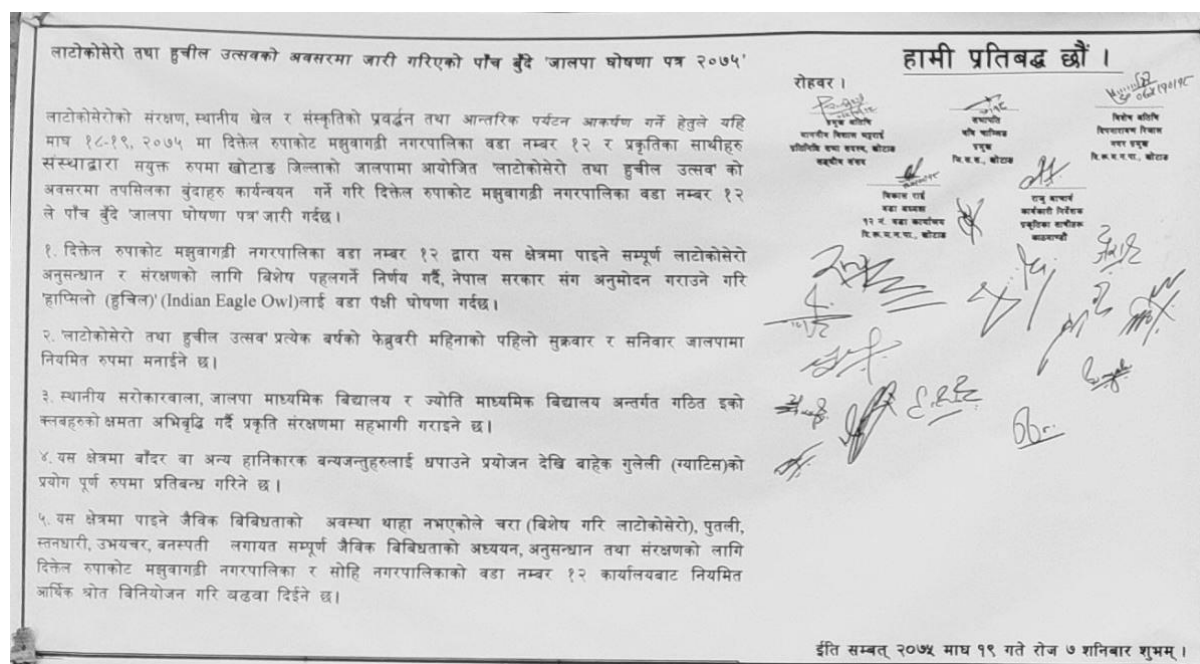 लाटोकोसेरो तथा हुचील उत्सवको अवसरमा जारी गरिएको पाँच बुँदे 'जालपा घोषणा पत्र २०७५'
लाटोकोसेरोको संरक्षण, स्थानीय खेल र संस्कृतिको प्रवर्द्धन तथा आन्तरिक पर्यटन आकर्षण गर्ने हेतुले यहि
माघ १८-१९, २०७५ मा दिक्तेल रुपाकोट मझुवागढी नगरपालिका वडा नम्बर १२ र प्रकृतिका साथीहरु
संस्थाद्वारा सयुक्त रुपमा खोटाङ जिल्लाको जालपामा आयोजित 'लाटोकोसेरो तथा हुचील उत्सव' को
अवसरमा तपसिलका बुंदाहरु कार्यन्वयन गर्ने गरि दिक्तेल रुपाकोट मझुवागढी नगरपालिका वडा नम्बर १२
ले पाँच बुँदे 'जालपा घोषणा पत्र' जारी गर्दछ।
१. दिक्तेल रुपाकोट मझुवागढी नगरपालिका वडा नम्बर १२ द्वारा यस क्षेत्रमा पाइने सम्पूर्ण लाटोकोसेरो
अनुसन्धान र संरक्षणको लागि बिशेष पहलगर्ने निर्णय गर्दै, नेपाल सरकार संग अनुमोदन गराउने गरि
'हाप्मिलो (हुचिल)' (Indian Eagle Owl)लाई वडा पंक्षी घोषणा गर्दछ।
२. 'लाटोकोसेरो तथा हुचील उत्सव' प्रत्येक बर्षको फेब्रुवरी महिनाको पहिलो सुक्रबार र सनिवार जालपामा
नियमित रुपमा मनाईने छ।
३. स्थानीय सरोकारवाला, जालपा माध्यमिक बिद्यालय र ज्योति माध्यमिक बिद्यालय अन्तर्गत गठित इको
क्लबहरुको क्षमता अभिबृद्धि गर्दै प्रकृति संरक्षणमा सहभागी गराइने छ।
४. यस क्षेत्रमा बाँदर वा अन्य हानिकारक बन्यजन्तुहरुलाई धपाउने प्रयोजन देखि बाहेक गुलेली (ग्याटिस)को
प्रयोग पूर्ण रुपमा प्रतिबन्ध गरिने छ।
५. यस क्षेत्रमा पाइने जैविक बिबिधताको अवस्था थाहा नभएकोले चरा (बिशेष गरि लाटोकोसेरो), पुतली,
स्तनधारी, उभयचर, बनस्पती लगायत सम्पूर्ण जैविक बिबिधताको अध्ययन, अनुसन्धान तथा संरक्षणको लागि
दिक्तेल रुपाकोट मझुवागढी नगरपालिका र सोहि नगरपालिकाको वडा नम्बर १२ कार्यालयबाट नियमित
आर्थिक श्रोत बिनियोजन गरि बढवा दिईने छ।
हामी प्रतिबद्ध छौं।
रोहवर।
प्रमुख अतिथि
माननीय विशाल भट्टराई
प्रतिनिधि सभा सदस्य, खोटाङ
सङ्घीय संसद
सभापति
प्रमुख
जि.स.स., खोटाङ
बिशेष अतिथि
दिपनारायण रिजाल
नगर प्रमुख
दि.रू.म.न.पा., खोटाङ
बिकास राई
वडा अध्यक्ष
१२ नं. वडा कार्यालय
दि.रू.म.न.पा., खोटाङ
राजु आचार्य
कार्यकारी निर्देशक
प्रकृतिका साथीहरु
काठमाण्डौ
ईति सम्बत् २०७५ माघ १९ गते रोज ७ शनिबार शुभम्।